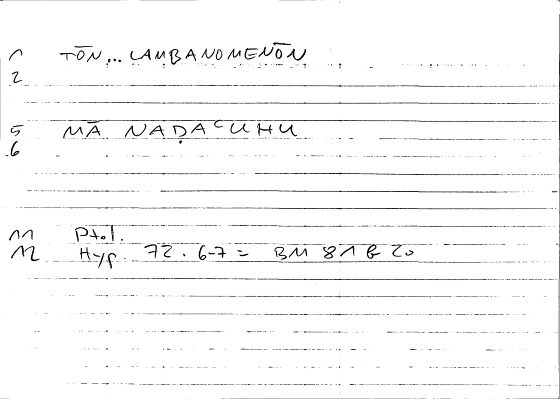 1 TŌN... LAMBANOMENŌN
2
5 MĀ NAḌAʿUHU
6
11 Ptol.
12 Hyp. 72.6-7 = BM 81 B 20